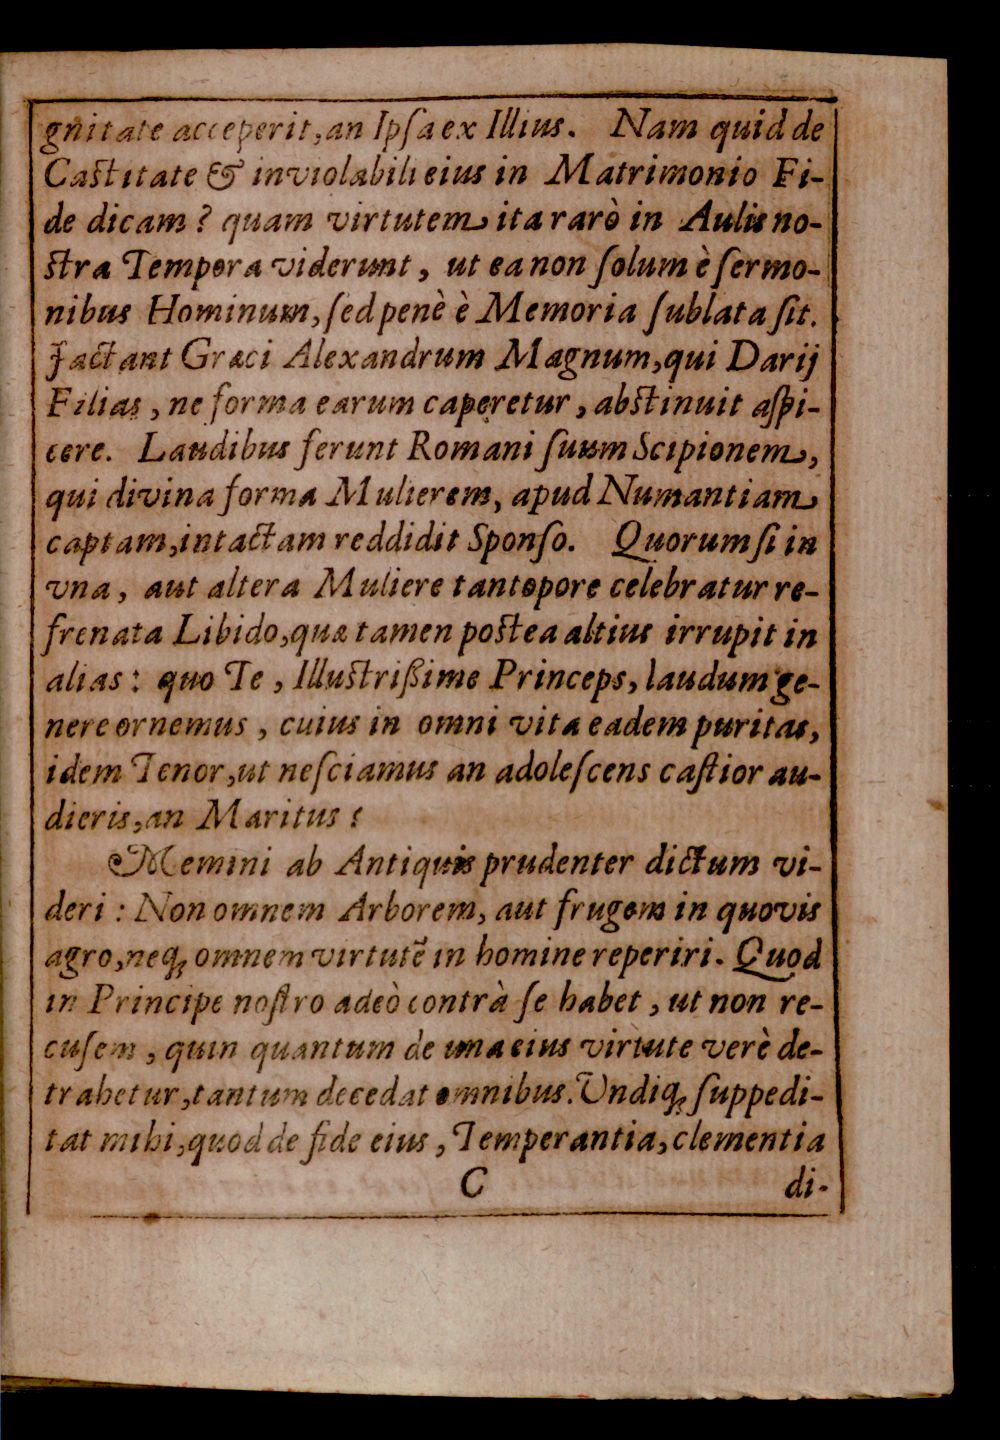 gnitate acceperit, an Ipſa ex Illius. Nam quid de
Caſtitate & inviolabili eius in Matrimonio Fi-
de dicam? quam virtutem ita rarò in Aulis no-
ſtra Tempora viderunt, ut ea non ſolum è ſermo-
nibus Hominum, ſed penè è Memoria ſublata ſit.
Jactant Græci Alexandrum Magnum, qui Darij
Filias, ne forma earum caperetur, abſtinuit aſpi-
cere. Laudibus ferunt Romani ſuum Scipionem,
qui divina forma Mulierem, apud Numantiam
captam, intactam reddidit Sponſo. Quorum ſi in
vna, aut altera Muliere tantopore celebratur re-
frenata Libido, quæ tamen poſtea altius irrupit in
alias: quo Te, Illuſtrißime Princeps, laudum ge-
nere ornemus, cuius in omni vita eadem puritas,
idem Tenor, ut neſciamus an adoleſcens caſtior au-
dieris, an Maritus?
Memini ab Antiquis prudenter dictum vi-
deri: Non omnem Arborem, aut frugem in quovis
agro, neq; omnem virtutẽ in homine reperiri. Quod
in Principe noſtro adeò contrà ſe habet, ut non re-
cuſem, quin quantum de una eius virtute verè de-
trahetur, tantum decedat omnibus. Undiq; ſuppedi-
tat mihi, quod de fide eius, Temperantia, clementia
C di-